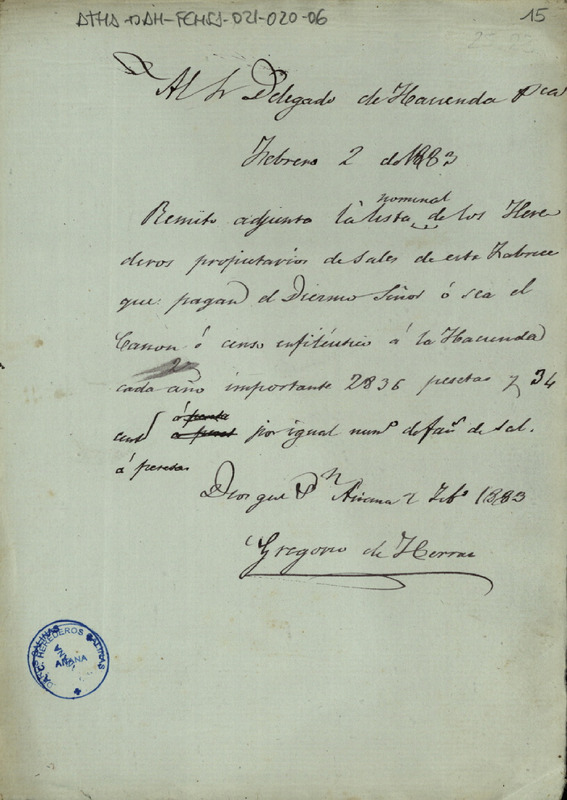 ATHA-DAH-FCHSA-021-020-06
15
Al Sr Delegado de Hacienda pca
Febrero 2 de 1883
Remito adjunta la lista nominal de los Here
deros propietarios de Sales de esta Fabrica
que pagan el Diezmo Señor ó sea el
Canon ó censo enfitéutico á la Hacienda
cada año importante 2836 pesetas y 34
cent á peseta por igual numº de fanˢ de sal.
á pesetas
Dios gue Añana 2 Febº 1883
Gregorio de Herran
HEREDEROS SALINAS
AÑANA